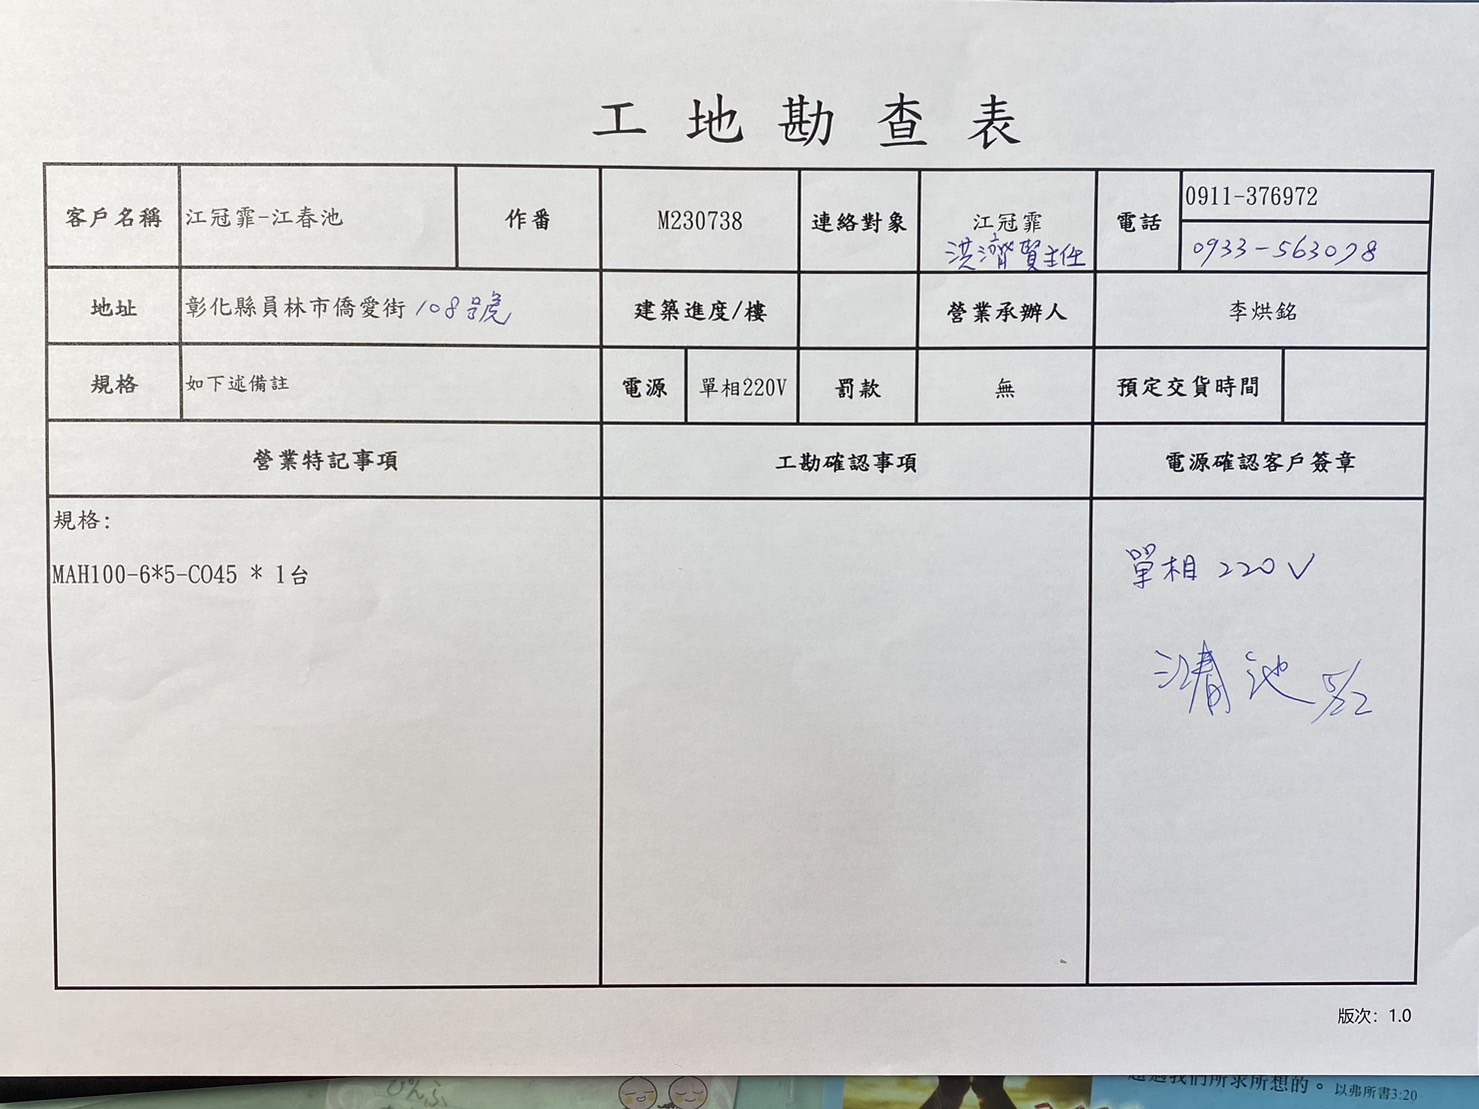 工地勘查表
客戶名稱 江冠霏-江春池 作番 M230738 連絡對象 江冠霏 電話 0911-376972
洪濟賢主任 0933-563078
地址 彰化縣員林市僑愛街 108號 建築進度/樓 營業承辦人 李烘銘
規格 如下述備註 電源 單相220V 罰款 無 預定交貨時間
營業特記事項 工勘確認事項 電源確認客戶簽章
規格:
MAH100-6*5-CO45 * 1台
單相 220V
江春池 5/22
版次: 1.0
ぴんふ
我們所求所想的。以弗所書3:20